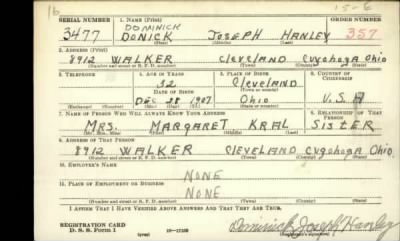 16 15-6
SERIAL NUMBER 1. NAME (Print) ORDER NUMBER
DOMINICK
3477 DONICK JOSEPH HANLEY 357
(First) (Middle) (Last)
2. ADDRESS (Print)
8912 WALKER Cleveland Cuyahoga Ohio
(Number and street or R. F. D. number) (Town) (County) (State)
3. TELEPHONE 4. AGE IN YEARS 5. PLACE OF BIRTH 6. COUNTRY OF CITIZENSHIP
32 Cleveland
DATE OF BIRTH (Town or county)
Dec 28 1907 Ohio U.S.A
(Exchange) (Number) (Mo.) (Day) (Yr.) (State or country)
7. NAME OF PERSON WHO WILL ALWAYS KNOW YOUR ADDRESS 8. RELATIONSHIP OF THAT PERSON
MRS. MARGARET KRAL SISTER
(Mr., Mrs., Miss) (First) (Middle) (Last)
9. ADDRESS OF THAT PERSON
8912 WALKER Cleveland Cuyahoga Ohio
(Number and street or R. F. D. number) (Town) (County) (State)
10. EMPLOYER'S NAME
NONE
11. PLACE OF EMPLOYMENT OR BUSINESS
NONE
(Number and street or R. F. D. number) (Town) (County) (State)
I AFFIRM THAT I HAVE VERIFIED ABOVE ANSWERS AND THAT THEY ARE TRUE.
REGISTRATION CARD
D. S. S. Form 1 (over) Dominick Joseph Hanley